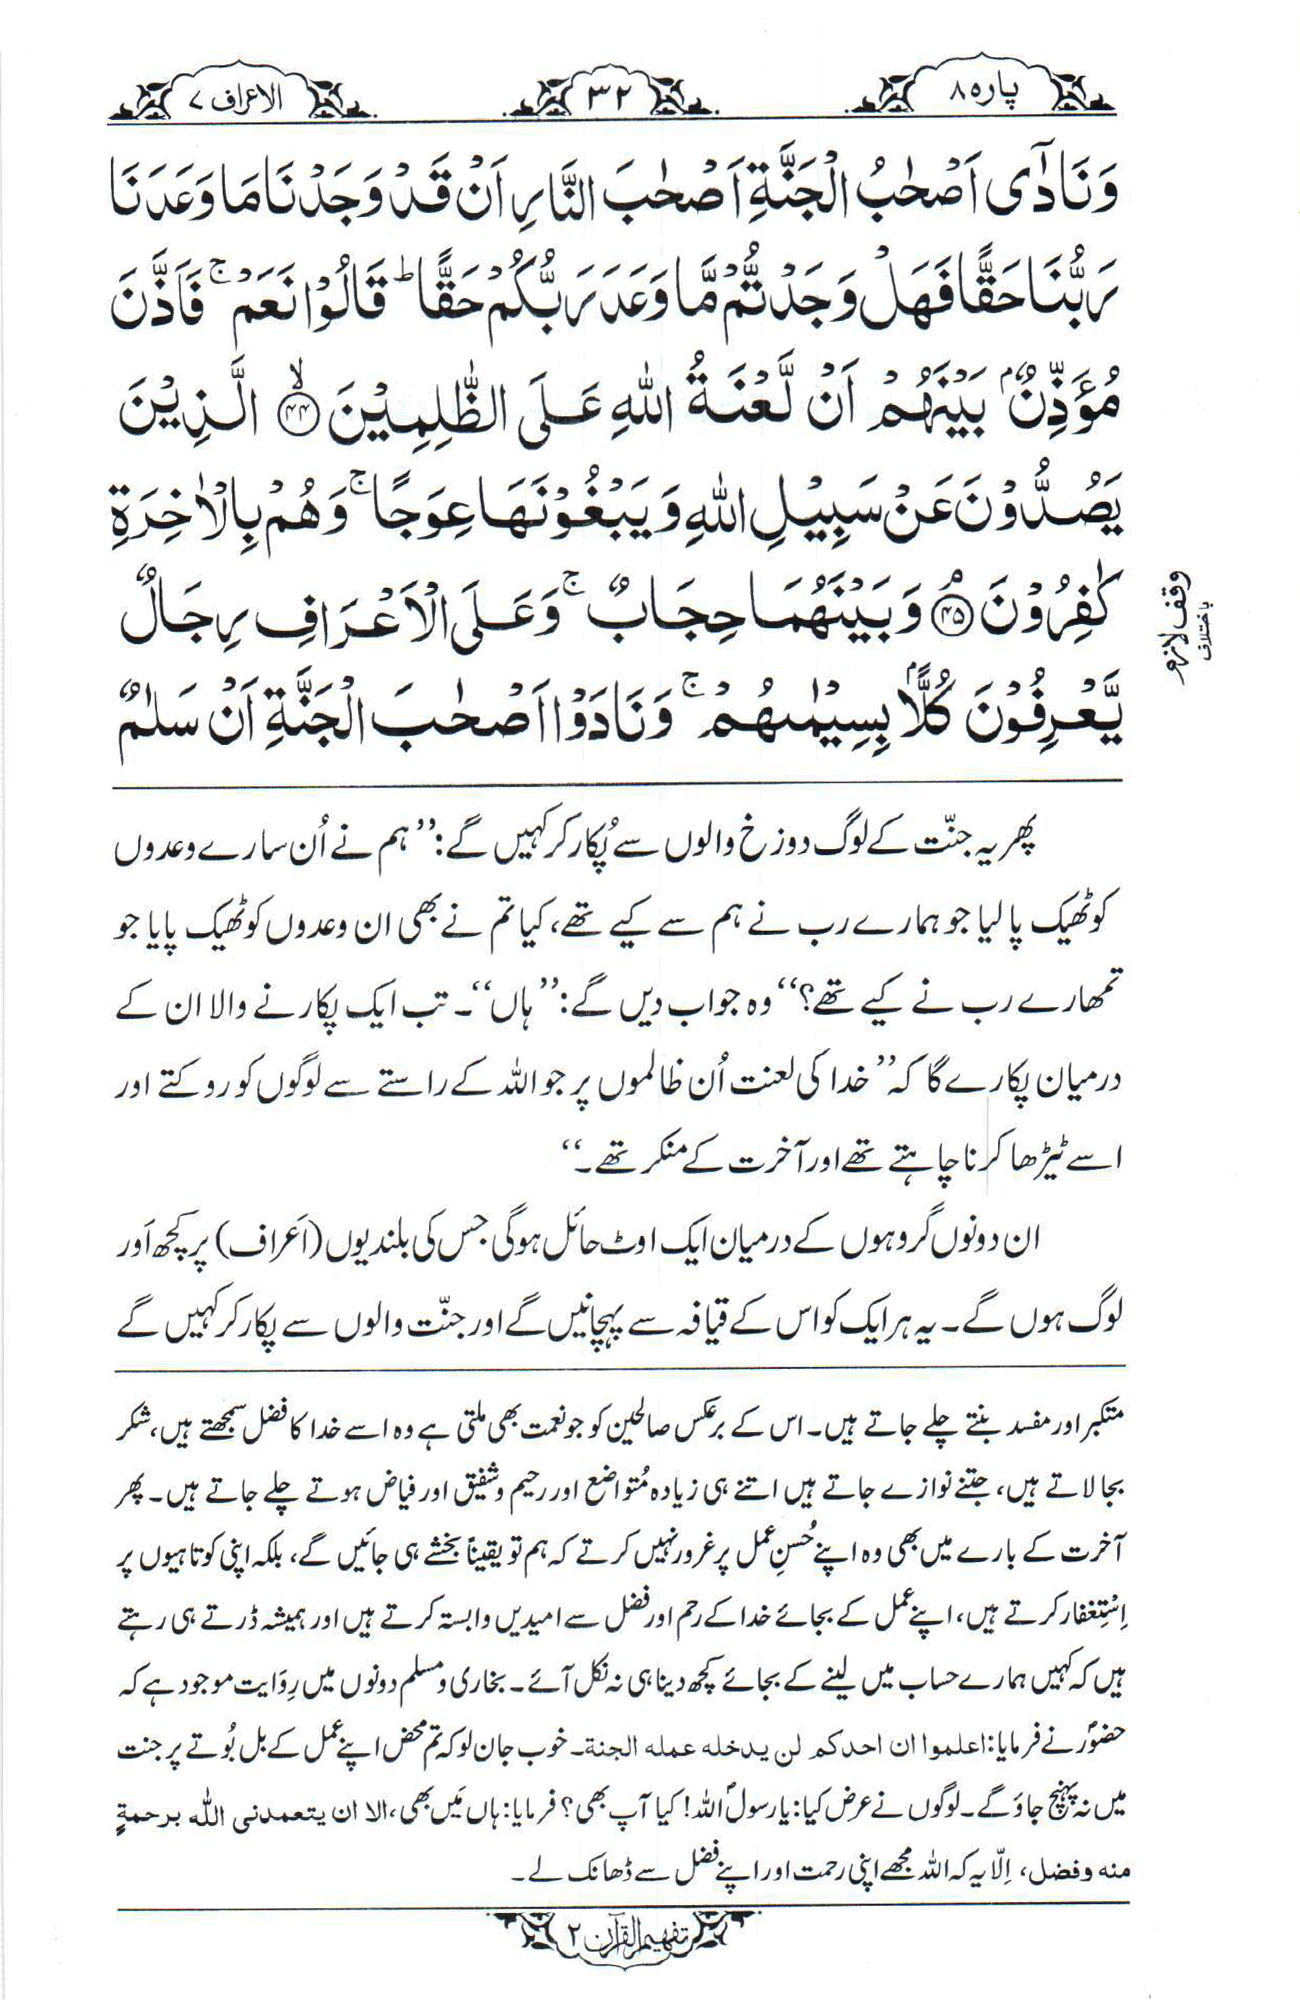 پارہ ۸
۳۲
الاعراف ۷
وَنَادٰۤى اَصْحٰبُ الْجَنَّةِ اَصْحٰبَ النَّارِ اَنْ قَدْ وَجَدْنَا مَا وَعَدَنَا
رَبُّنَا حَقًّا فَهَلْ وَجَدْتُّمْ مَّا وَعَدَ رَبُّكُمْ حَقًّا ؕ قَالُوْا نَعَمْ ۚ فَاَذَّنَ
مُؤَذِّنٌۢ بَيْنَهُمْ اَنْ لَّعْنَةُ اللّٰهِ عَلَى الظّٰلِمِيْنَ ۙ﴿۴۴﴾ الَّذِيْنَ
يَصُدُّوْنَ عَنْ سَبِيْلِ اللّٰهِ وَيَبْغُوْنَهَا عِوَجًا ۚ وَهُمْ بِالْاٰخِرَةِ
كٰفِرُوْنَ ۘ﴿۴۵﴾ وَبَيْنَهُمَا حِجَابٌ ۚ وَعَلَى الْاَعْرَافِ رِجَالٌ
يَّعْرِفُوْنَ كُلًّۢا بِسِيْمٰىهُمْ ۚ وَنَادَوْا اَصْحٰبَ الْجَنَّةِ اَنْ سَلٰمٌ
وقف لازم
باختلاف
پھر یہ جنّت کے لوگ دوزخ والوں سے پُکار کر کہیں گے: ”ہم نے اُن سارے وعدوں
کو ٹھیک پا لیا جو ہمارے رب نے ہم سے کیے تھے، کیا تم نے بھی ان وعدوں کو ٹھیک پایا جو
تمھارے رب نے کیے تھے؟“ وہ جواب دیں گے: ”ہاں“۔ تب ایک پکارنے والا ان کے
درمیان پکارے گا کہ ”خدا کی لعنت اُن ظالموں پر جو اللہ کے راستے سے لوگوں کو روکتے اور
اسے ٹیڑھا کرنا چاہتے تھے اور آخرت کے منکر تھے۔“
ان دونوں گروہوں کے درمیان ایک اوٹ حائل ہوگی جس کی بلندیوں (اَعراف) پر کچھ اَور
لوگ ہوں گے۔ یہ ہر ایک کو اس کے قیافہ سے پہچانیں گے اور جنّت والوں سے پکار کر کہیں گے
متکبر اور مفسد بنتے چلے جاتے ہیں۔ اس کے برعکس صالحین کو جو نعمت بھی ملتی ہے وہ اسے خدا کا فضل سمجھتے ہیں، شکر
بجا لاتے ہیں، جتنے نوازے جاتے ہیں اتنے ہی زیادہ مُتواضع اور رحیم و شفیق اور فیاض ہوتے چلے جاتے ہیں۔ پھر
آخرت کے بارے میں بھی وہ اپنے حُسنِ عمل پر غرور نہیں کرتے کہ ہم تو یقیناً بخشے ہی جائیں گے، بلکہ اپنی کوتاہیوں پر
اِستِغفار کرتے ہیں، اپنے عمل کے بجائے خدا کے رحم اور فضل سے امیدیں وابستہ کرتے ہیں اور ہمیشہ ڈرتے ہی رہتے
ہیں کہ کہیں ہمارے حساب میں لینے کے بجائے کچھ دینا ہی نہ نکل آئے۔ بخاری و مسلم دونوں میں رِوَایت موجود ہے کہ
حضوؐر نے فرمایا: اعلموا ان احدکم لن یدخله عمله الجنة۔ خوب جان لو کہ تم محض اپنے عمل کے بل بُوتے پر جنت
میں نہ پہنچ جاؤ گے۔ لوگوں نے عرض کیا: یا رسولؐ اللہ! کیا آپ بھی؟ فرمایا: ہاں مَیں بھی، الا ان یتعمدنی اللّٰه برحمةٍ
منه وفضل، اِلّا یہ کہ اللہ مجھے اپنی رحمت اور اپنے فضل سے ڈھانک لے۔
تفہیم القرآن ۲